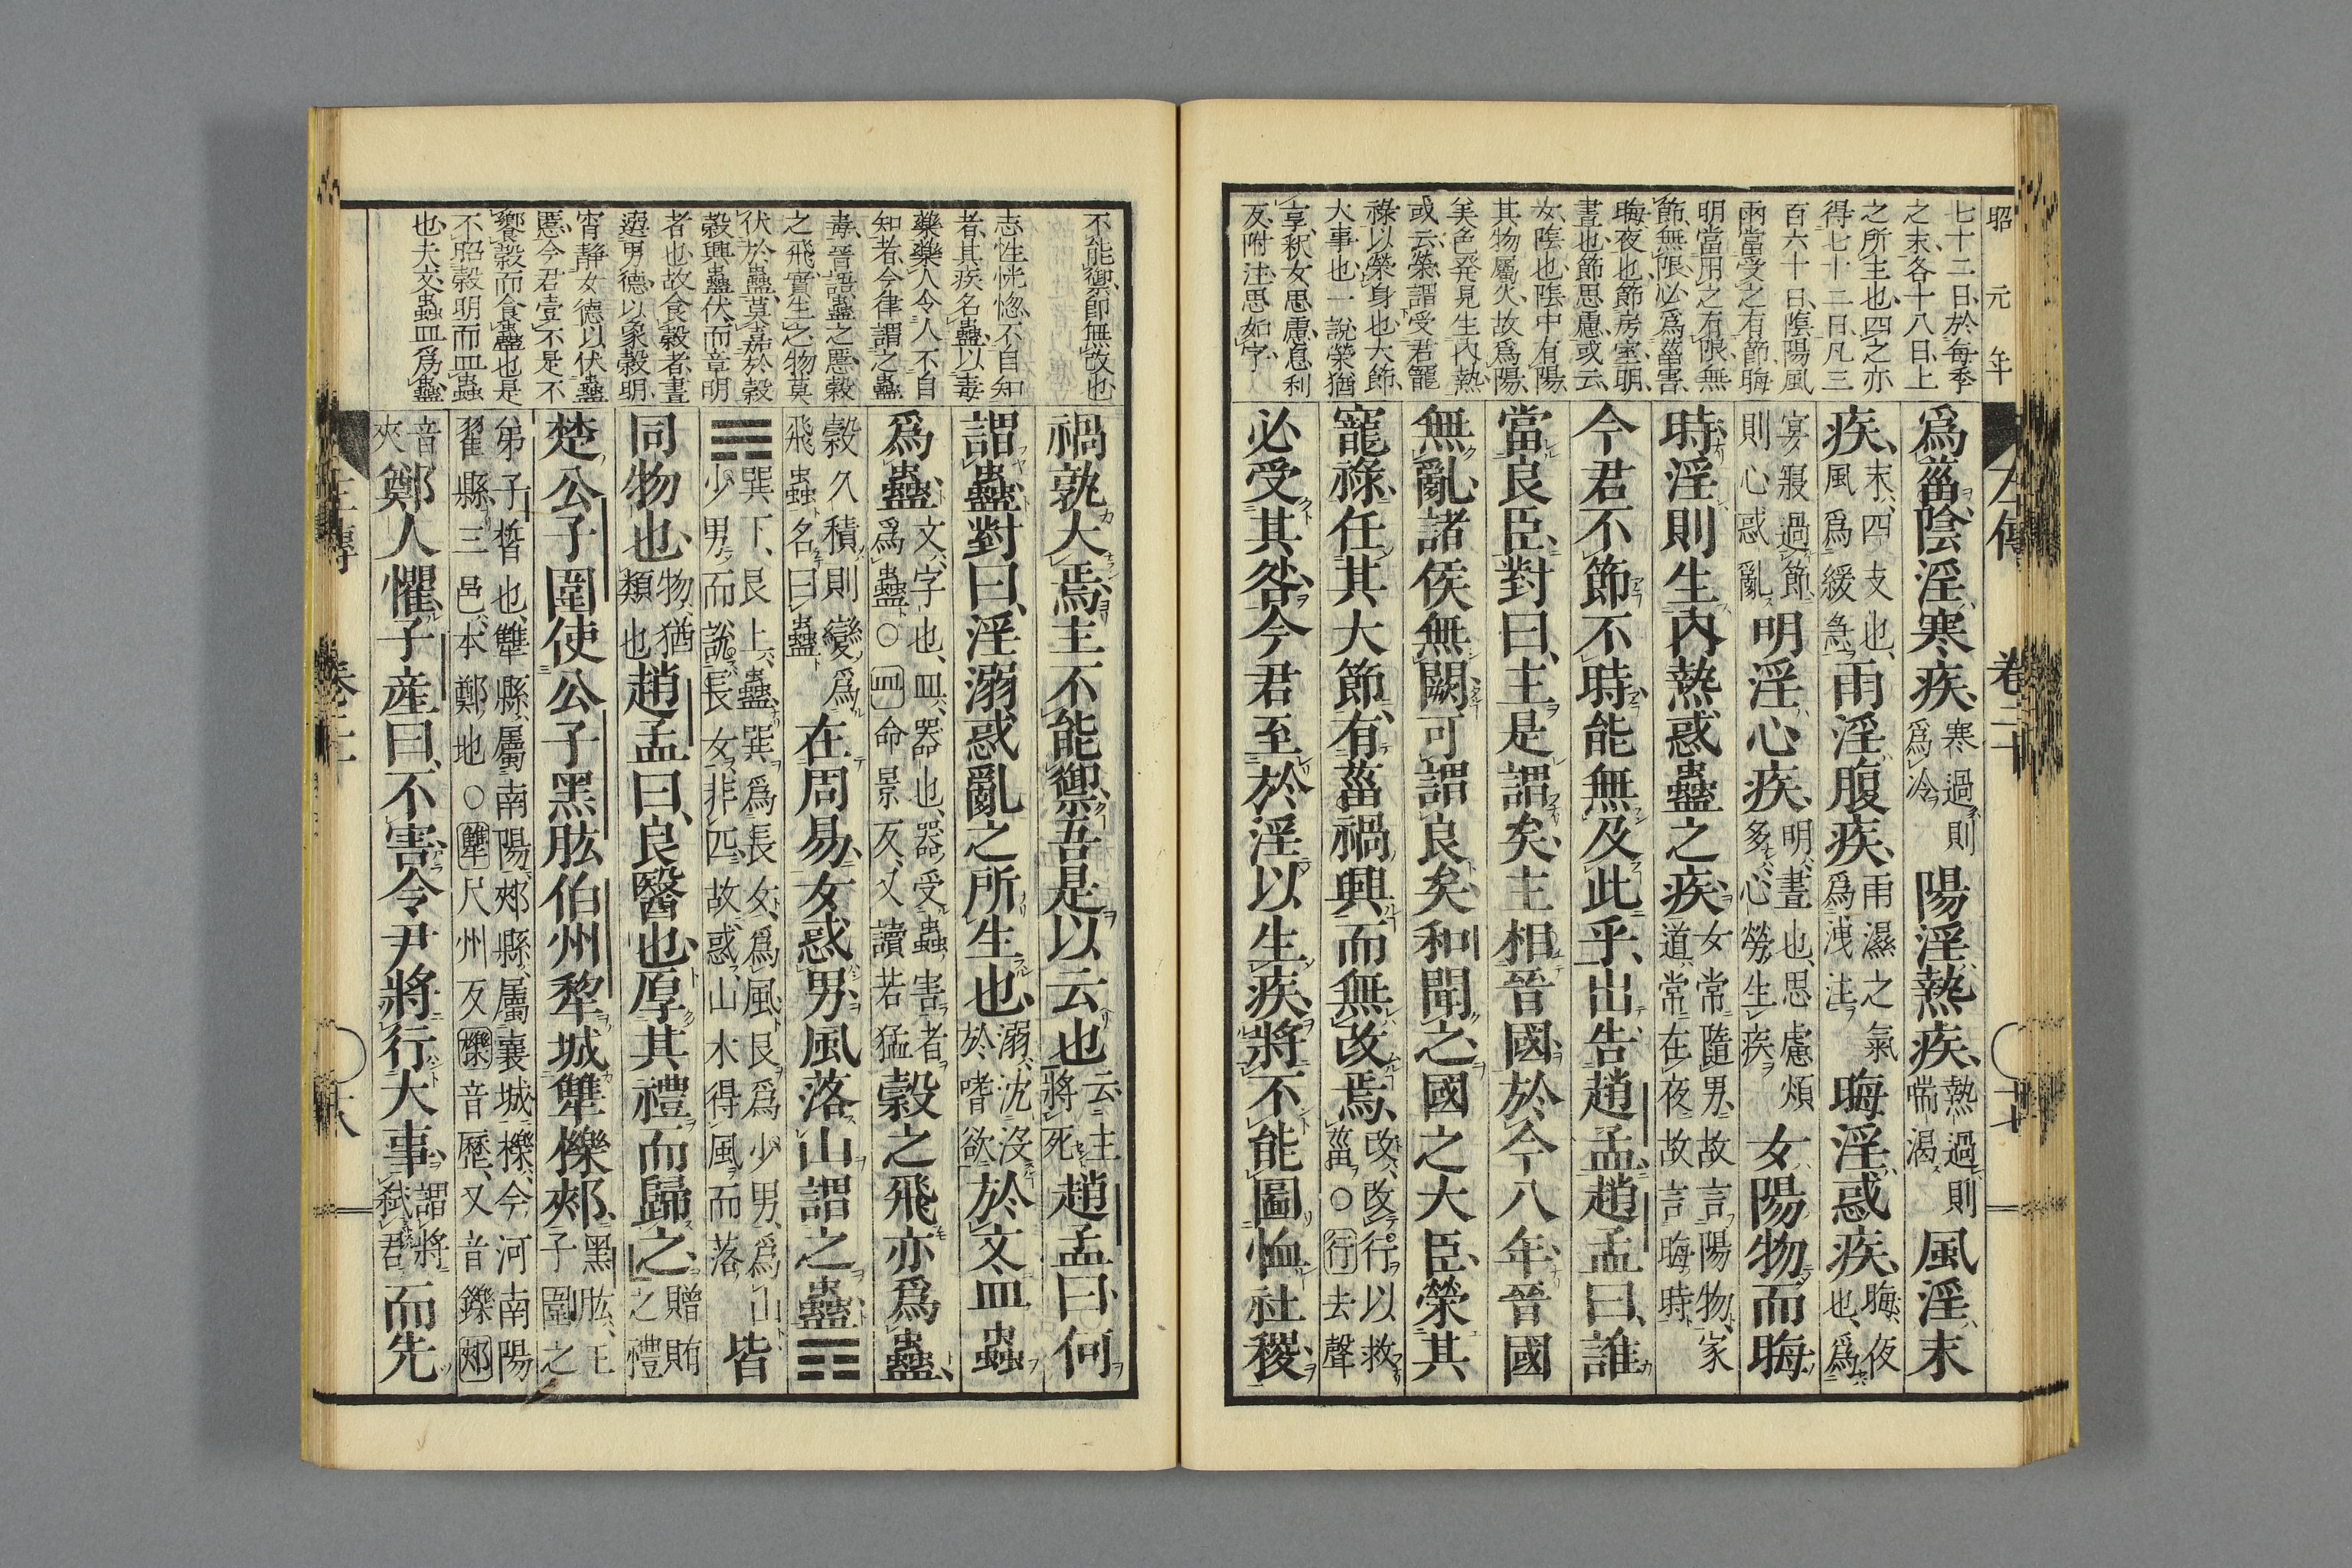 昭元年
七十二日於每季
之末各十八日上
之所主也四之亦
得七十二日凡三
百六十日陰陽風
雨當受之有節晦
明當用之有限無
節無限必爲菑害
晦夜也節房室明
晝也節思慮或云
女陰也陰中有陽
其物屬火故爲陽
美色発見生內熱
或云榮謂受君寵
祿以榮身也大節
大事也一說榮猶
享釈女思慮息利
反附注思如字
左傳 卷二十 十七
爲菑陰淫寒疾寒過則爲冷陽淫熱疾熱過則喘渴風淫末
疾末四支也風爲緩急雨淫腹疾雨濕之氣爲洩注晦淫惑疾晦夜也爲
宴寢過節則心惑亂明淫心疾明晝也思慮煩多心勞生疾女陽物而晦
時淫則生內熱惑蠱之疾女常隨男故言陽物家道常在夜故言晦時
今君不節不時能無及此乎出告趙孟趙孟曰誰
當良臣對曰主是謂矣主相晉國於今八年晉國
無亂諸侯無闕可謂良矣和聞之國之大臣榮其
寵祿任其大節有菑禍興而無改焉改改行以救菑○行去聲
必受其咎今君至於淫以生疾將不能圖恤社稷
不能禦即無改也
志性恍惚不自知
者其疾名蠱以毒
藥藥人令人不自
知者今律謂之蠱
毒晉語蠱之慝穀
之飛實生之物莫
伏於蠱莫嘉於穀
穀興蠱伏而章明
者也故食穀者晝
選男德以象穀明
宵靜女德以伏蠱
慝今君壹不是不
饗穀而食蠱也是
不昭穀明而皿蟲
也夫文蟲皿爲蠱
禍孰大焉主不能禦吾是以云也云主將死趙孟曰何
謂蠱對曰淫溺惑亂之所生也溺沈沒於嗜欲於文皿蟲
爲蠱文字也皿器也器受蟲害者爲蠱○皿命景反又讀若猛穀之飛亦爲蠱
穀久積則變爲飛蟲名曰蠱在周易女惑男風落山謂之蠱䷑
巽下艮上蠱巽爲長女爲風艮爲少男爲山少男而說長女非匹故惑山木得風而落皆
同物也物猶類也趙孟曰良醫也厚其禮而歸之贈賄之禮
楚公子圍使公子黑肱伯州犂城犨櫟郟黑肱王子圍之
弟子晳也犨縣屬南陽郟縣屬襄城櫟今河南陽翟縣三邑本鄭地○犨尺州反櫟音歷又音鑠郟
音夾鄭人懼子產曰不害令尹將行大事謂將弒君而先